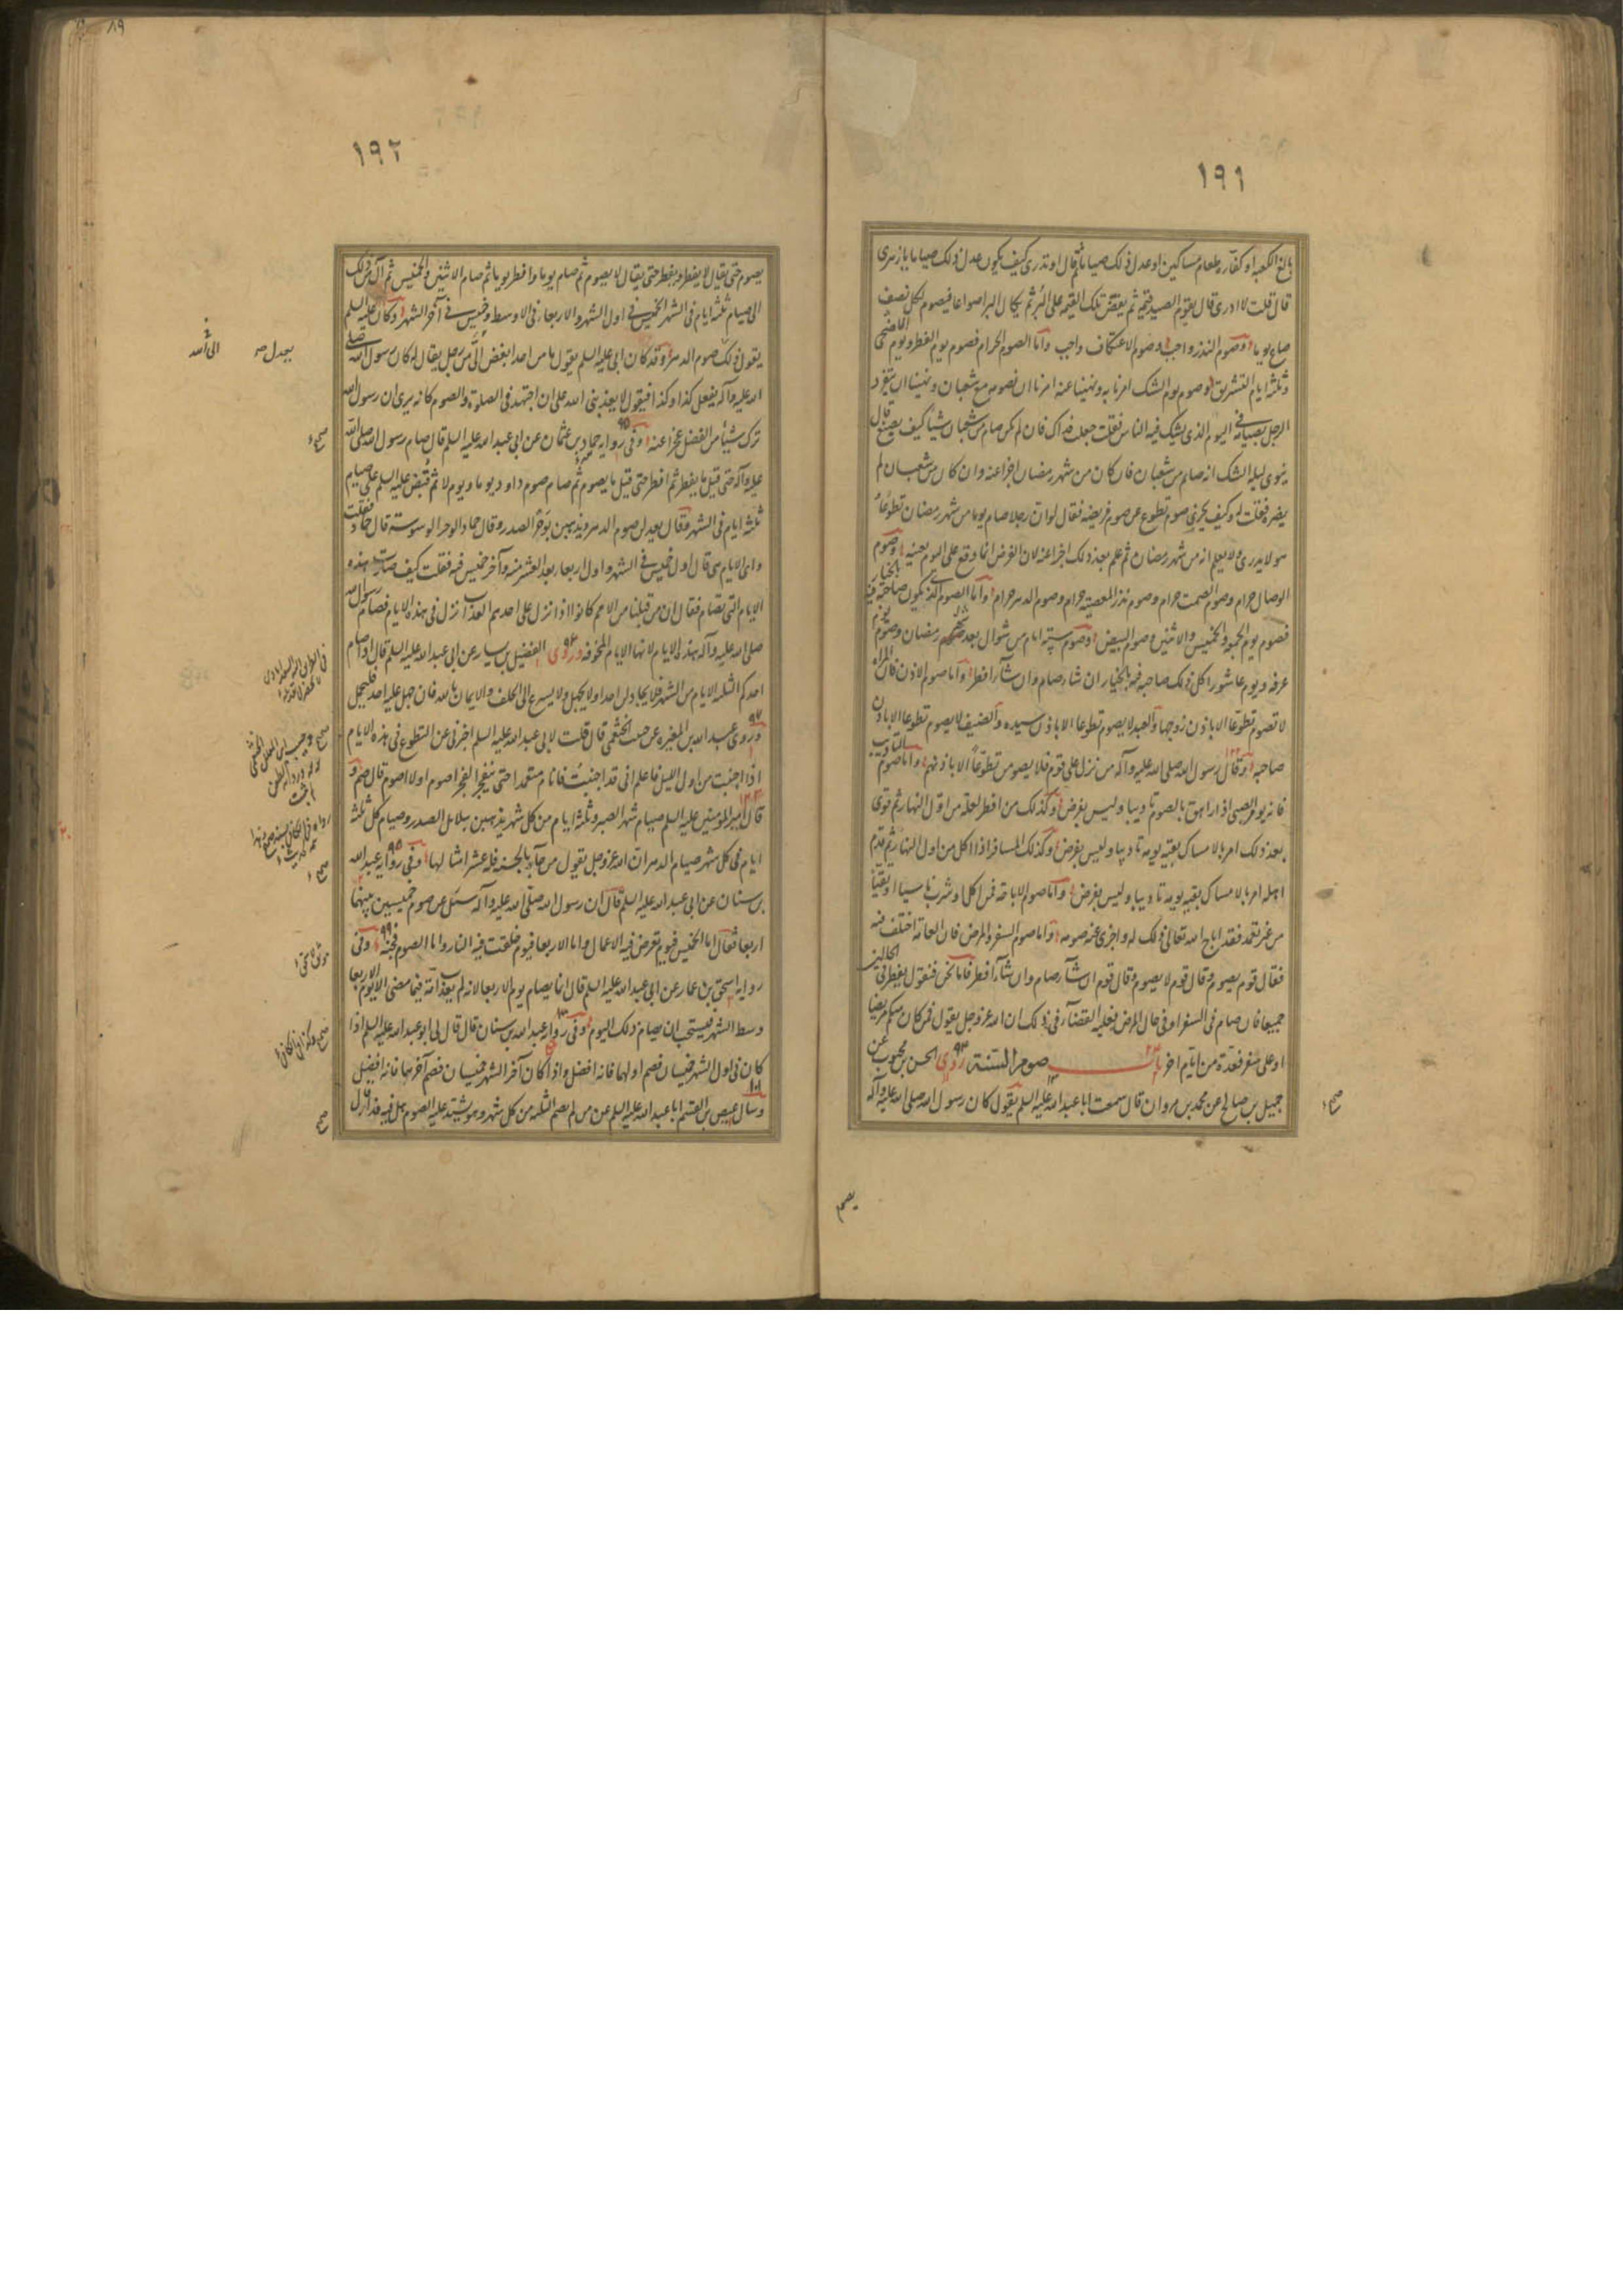 ١٩١
بالغ الكعبة او كفارة طعام مساكين او عدل ذلك صياما ثم قال او تدرى كيف يكون عدل ذلك صياما يا زهرى
قال قلت لا ادرى قال يقوم الصيد قيمة ثم يفض تلك القيمة على البر ثم يكال البر اصواعا فيصوم لكل نصف
صاع يوما وصوم النذر واجب وصوم الاعتكاف واجب واما الصوم الحرام فصوم يوم الفطر ويوم الاضحى
وثلثة ايام التشريق وصوم يوم الشك امرنا به ونهينا عنه امرنا ان نصومه مع شعبان ونهينا ان ينفرد
الرجل بصيامه في اليوم الذى يشك فيه الناس فقلت جعلت فداك فان لم يكن صام من شعبان شيئا كيف يصنع قال
ينوى ليلة الشك انه صائم من شعبان فان كان من شهر رمضان اجزا عنه وان كان من شعبان لم
يضره فقلت له وكيف يجزى صوم تطوع عن صوم فريضة فقال لو ان رجلا صام يوما من شهر رمضان تطوعا
وهو لا يدرى ولا يعلم انه من شهر رمضان ثم علم بعد ذلك اجزا عنه لان الفرض انما وقع على اليوم بعينه وصوم
الوصال حرام وصوم الصمت حرام وصوم نذر المعصية حرام وصوم الدهر حرام واما الصوم الذى يكون صاحبه فيه بالخيار
فصوم يوم الجمعة والخميس والاثنين وصوم البيض وصوم ستة ايام من شوال بعد شهر رمضان وصوم يوم
عرفة ويوم عاشورا كل ذلك صاحبه فيه بالخيار ان شاء صام وان شاء افطر واما صوم الاذن فان المراة
لا تصوم تطوعا الا باذن زوجها والعبد لا يصوم تطوعا الا باذن سيده والضيف لا يصوم تطوعا الا باذن
صاحبه وقال رسول الله صلى الله عليه وآله من نزل على قوم فلا يصومن تطوعا الا باذنهم واما صوم التاديب
فانه يومر الصبى اذا راهق بالصوم تاديبا وليس بفرض وكذلك من افطر لعلة من اول النهار ثم قوى
بعد ذلك امر بالامساك بقية يومه تاديبا وليس بفرض وكذلك المسافر اذا اكل من اول النهار ثم قدم
اهله امر بالامساك بقية يومه تاديبا وليس بفرض واما صوم الاباحة فمن اكل او شرب ناسيا او تقيا
من غير تعمد فقد اباح الله تعالى ذلك له واجزى عنه صومه واما صوم السفر والمرض فان العامة اختلفت فيه
فقال قوم يصوم وقال قوم لا يصوم وقال قوم ان شآء صام وان شآء افطر فاما نحن فنقول يفطر في الحالين
جميعا فان صام فى السفر او فى حال المرض فعليه القضآء فى ذلك ان الله عز وجل يقول فمن كان منكم مريضا
او على سفر فعدة من ايام اخر باب صوم السنة روى الحسن بن محبوب عن
جميل بن صالح عن محمد بن مروان قال سمعت ابا عبد الله عليه السلم يقول كان رسول الله صلى الله عليه وآله
يصوم
١٩٢
يصوم حتى يقال لا يفطر ويفطر حتى يقال لا يصوم ثم صام يوما وافطر يوما ثم صام الاثنين والخميس ثم آل من ذلك
الى صيام ثلثة ايام فى الشهر الخميس فى اول الشهر والاربعاء فى الاوسط وخميس فى آخر الشهر وكان عليه السلم
يقول ذلك صوم الدهر وقد كان ابى عليه السلم يقول ما من احد ابغض الى من رجل يقال له كان رسول الله صلى
الله عليه وآله يفعل كذا وكذا فيقول لا يعذبنى الله على ان اجتهد فى الصلوة والصوم كانه يرى ان رسول الله
ترك شيئا من الفضل عجزا عنه وفى رواية حماد بن عثمان عن ابى عبد الله عليه السلم قال صام رسول الله صلى الله
عليه وآله حتى قيل ما يفطر ثم افطر حتى قيل ما يصوم ثم صام صوم داود يوما ويوم لا ثم قبض عليه السلم على صيام
ثلثة ايام فى الشهر وقال يعدلن صوم الدهر ويذهبن بوحر الصدر وقال حماد الوحر الوسوسة قال حماد فقلت
واى الايام هى قال اول خميس فى الشهر واول اربعاء بعد العشر منه وآخر خميس فيه فقلت كيف صارت هذه
الايام التى تصام فقال ان من قبلنا من الامم كانوا اذا نزل على احدهم العذاب نزل فى هذه الايام فصام رسول الله
صلى الله عليه وآله هذه الايام لانها الايام المخوفة وروى الفضيل بن يسار عن ابى عبد الله عليه السلم قال اذا صام
احدكم الثلثة الايام من الشهر فلا يجادلن احدا ولا يجهل ولا يسرع الى الحلف والايمان بالله فان جهل عليه احد فليتحمل
وروى عبد الله بن المغيرة عن حبيب الخثعمى قال قلت لابى عبد الله عليه السلم اخبرنى عن التطوع فى هذه الايام
اذا اجنبت من اول الليل فاعلم انى قد اجنبت فانام متعمدا حتى ينفجر الفجر اصوم او لا اصوم قال صم و
قال امير المؤمنين عليه السلم صيام شهر الصبر وثلثة ايام من كل شهر يذهبن ببلابل الصدر وصيام كل ثلثة
ايام فى كل شهر صيام الدهر ان الله عز وجل يقول من جآء بالحسنة فله عشر امثالها وفى رواية عبد الله
بن سنان عن ابى عبد الله عليه السلم قال ان رسول الله صلى الله عليه وآله سئل عن صوم خميسين بينهما
اربعا فقال اما الخميس فيوم تعرض فيه الاعمال واما الاربعا فيوم خلقت فيه النار واما الصوم فجنة وفى
رواية اسحق بن عمار عن ابى عبد الله عليه السلم قال انما يصام يوم الاربعا لانه لم يعذب امة فيما مضى الا يوم الاربعا
وسط الشهر فيستحب ان يصام ذلك اليوم وفى رواية عبد الله بن سنان قال قال لى ابو عبد الله عليه السلم اذا
كان فى اول الشهر خميسان فصم اولهما فانه افضل واذا كان آخر الشهر خميسان فصم آخرهما فانه افضل
وسال عيص بن القسم ابا عبد الله عليه السلم عن من لم يصم الثلثة من كل شهر وهو يشتد عليه الصوم هل فيه فداء قال